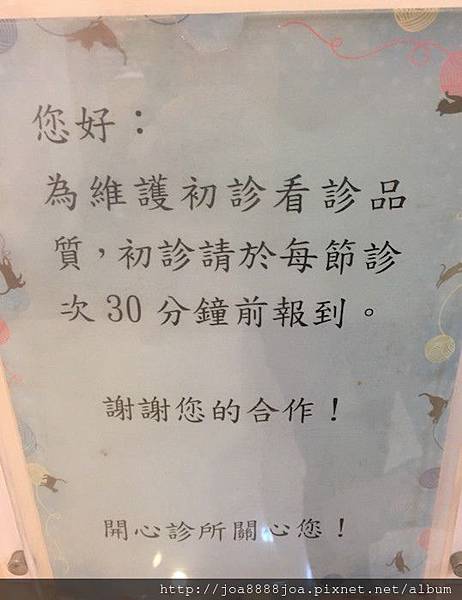 您好：
為維護初診看診品
質，初診請於每節診
次30分鐘前報到。
謝謝您的合作！
開心診所關心您！
http://joa8888joa.pixnet.net/album